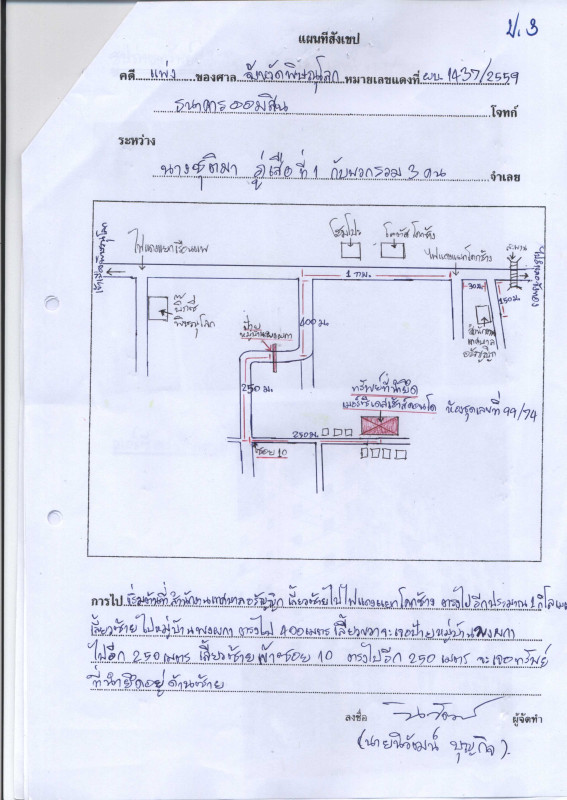 ป.3
แผนที่สังเขป
คดี แพ่ง ของศาล จังหวัดพิษณุโลก หมายเลขแดงที่ ผบ. 1437/2559
ธนาคารออมสิน โจทก์
ระหว่าง
นางชุติมา ที่ 1 กับพวกรวม 3 คน จำเลย
ไฟแดงแยกเรือนแพ
โฮมโปร
โลตัส โคกช้าง
ไฟแดงแยกโคกช้าง
สะพาน
1 กม.
30 ม.
150 ม.
บิ๊กซี
พิษณุโลก
สำนักงาน
เทศบาล
อรัญญิก
400 ม.
ป้าย
250 ม.
ทรัพย์ที่นำยึด
ห้องชุดเลขที่ 99/74
250 ม.
ซอย 10
การไป เริ่มต้นที่ สำนักงานเทศบาลอรัญญิก เลี้ยวซ้ายไปไฟแดงแยกโคกช้าง ตรงไปอีกประมาณ 1 กิโลเมตร
เลี้ยวซ้ายไปหมู่บ้านพงผกา ตรงไป 400 เมตร เลี้ยวขวาจะเจอป้ายหมู่บ้านพงผกา
ไปอีก 250 เมตร เลี้ยวซ้ายเข้าซอย 10 ตรงไปอีก 250 เมตร จะเจอทรัพย์
ที่นำยึดอยู่ด้านซ้าย
ลงชื่อ ผู้จัดทำ
(นายนิวัฒน์ บุญกิจ)